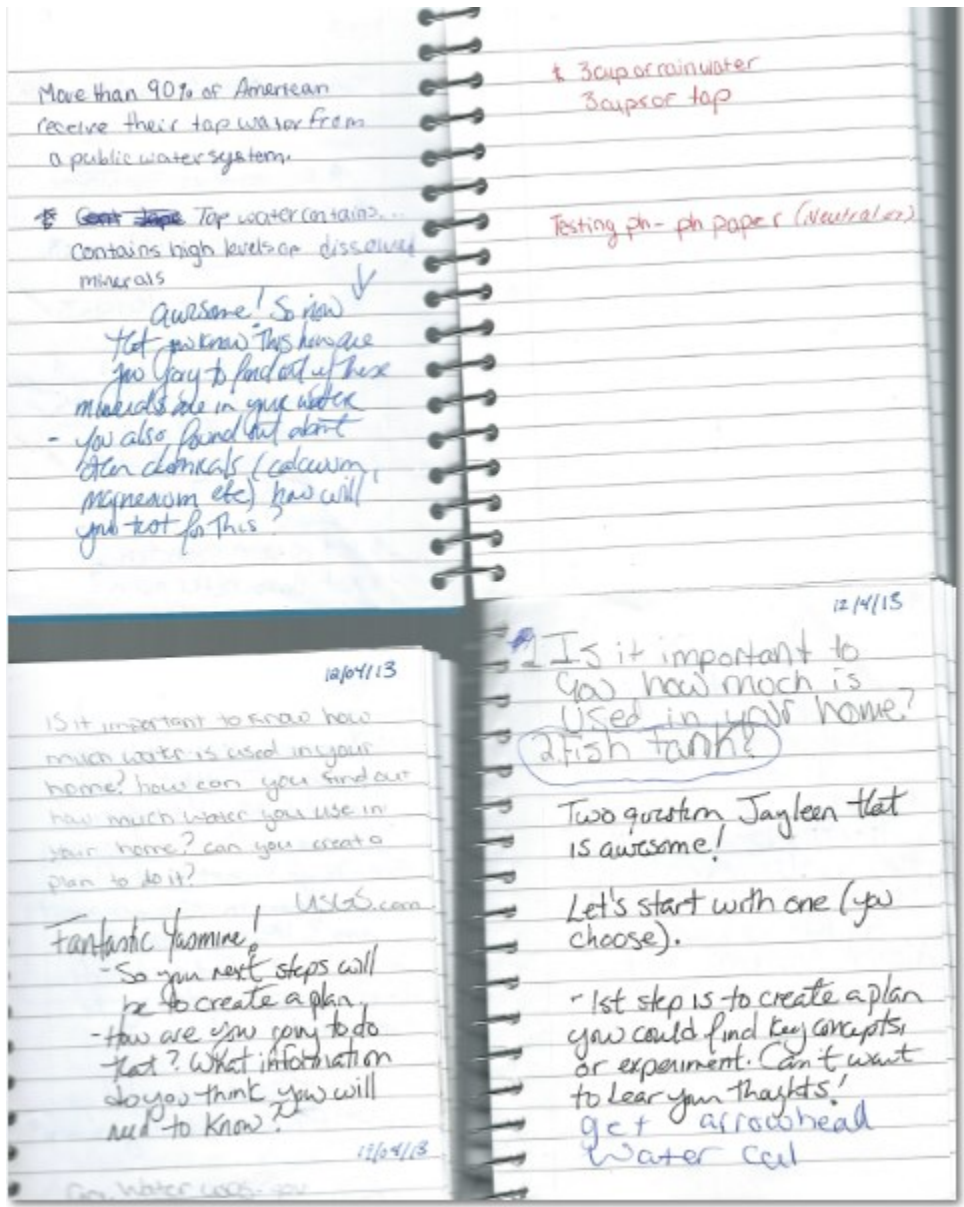 More than 90% of American
receive their tap water from
a public water system.
Tap water contains...
contains high levels of dissolved
minerals
awesome! So now
that you know this how are
you going to find out if these
minerals are in your water
- You also found out about
other chemicals (calcium,
magnesium etc) how will
you test for this?
3 cup or rainwater
3 cups or tap
Testing ph - ph paper (Neutral or)
12/04/13
Is it important to know how
much water is used in your
home? how can you find out
how much water you use in
your home? can you creat a
plan to do it?
USGS.com
Fantastic Yasmine!
- So your next steps will
be to create a plan.
- How are you going to do
that? What information
do you think you will
need to know?
12/04/13
12/4/13
1 Is it important to
you how much is
used in your home?
2. fish tank?
Two question Jayleen that
is awesome!
Let's start with one (you
choose).
- 1st step is to create a plan
you could find key concepts,
or experiment. Can't want
to hear your thoughts!
get arrowhead
water